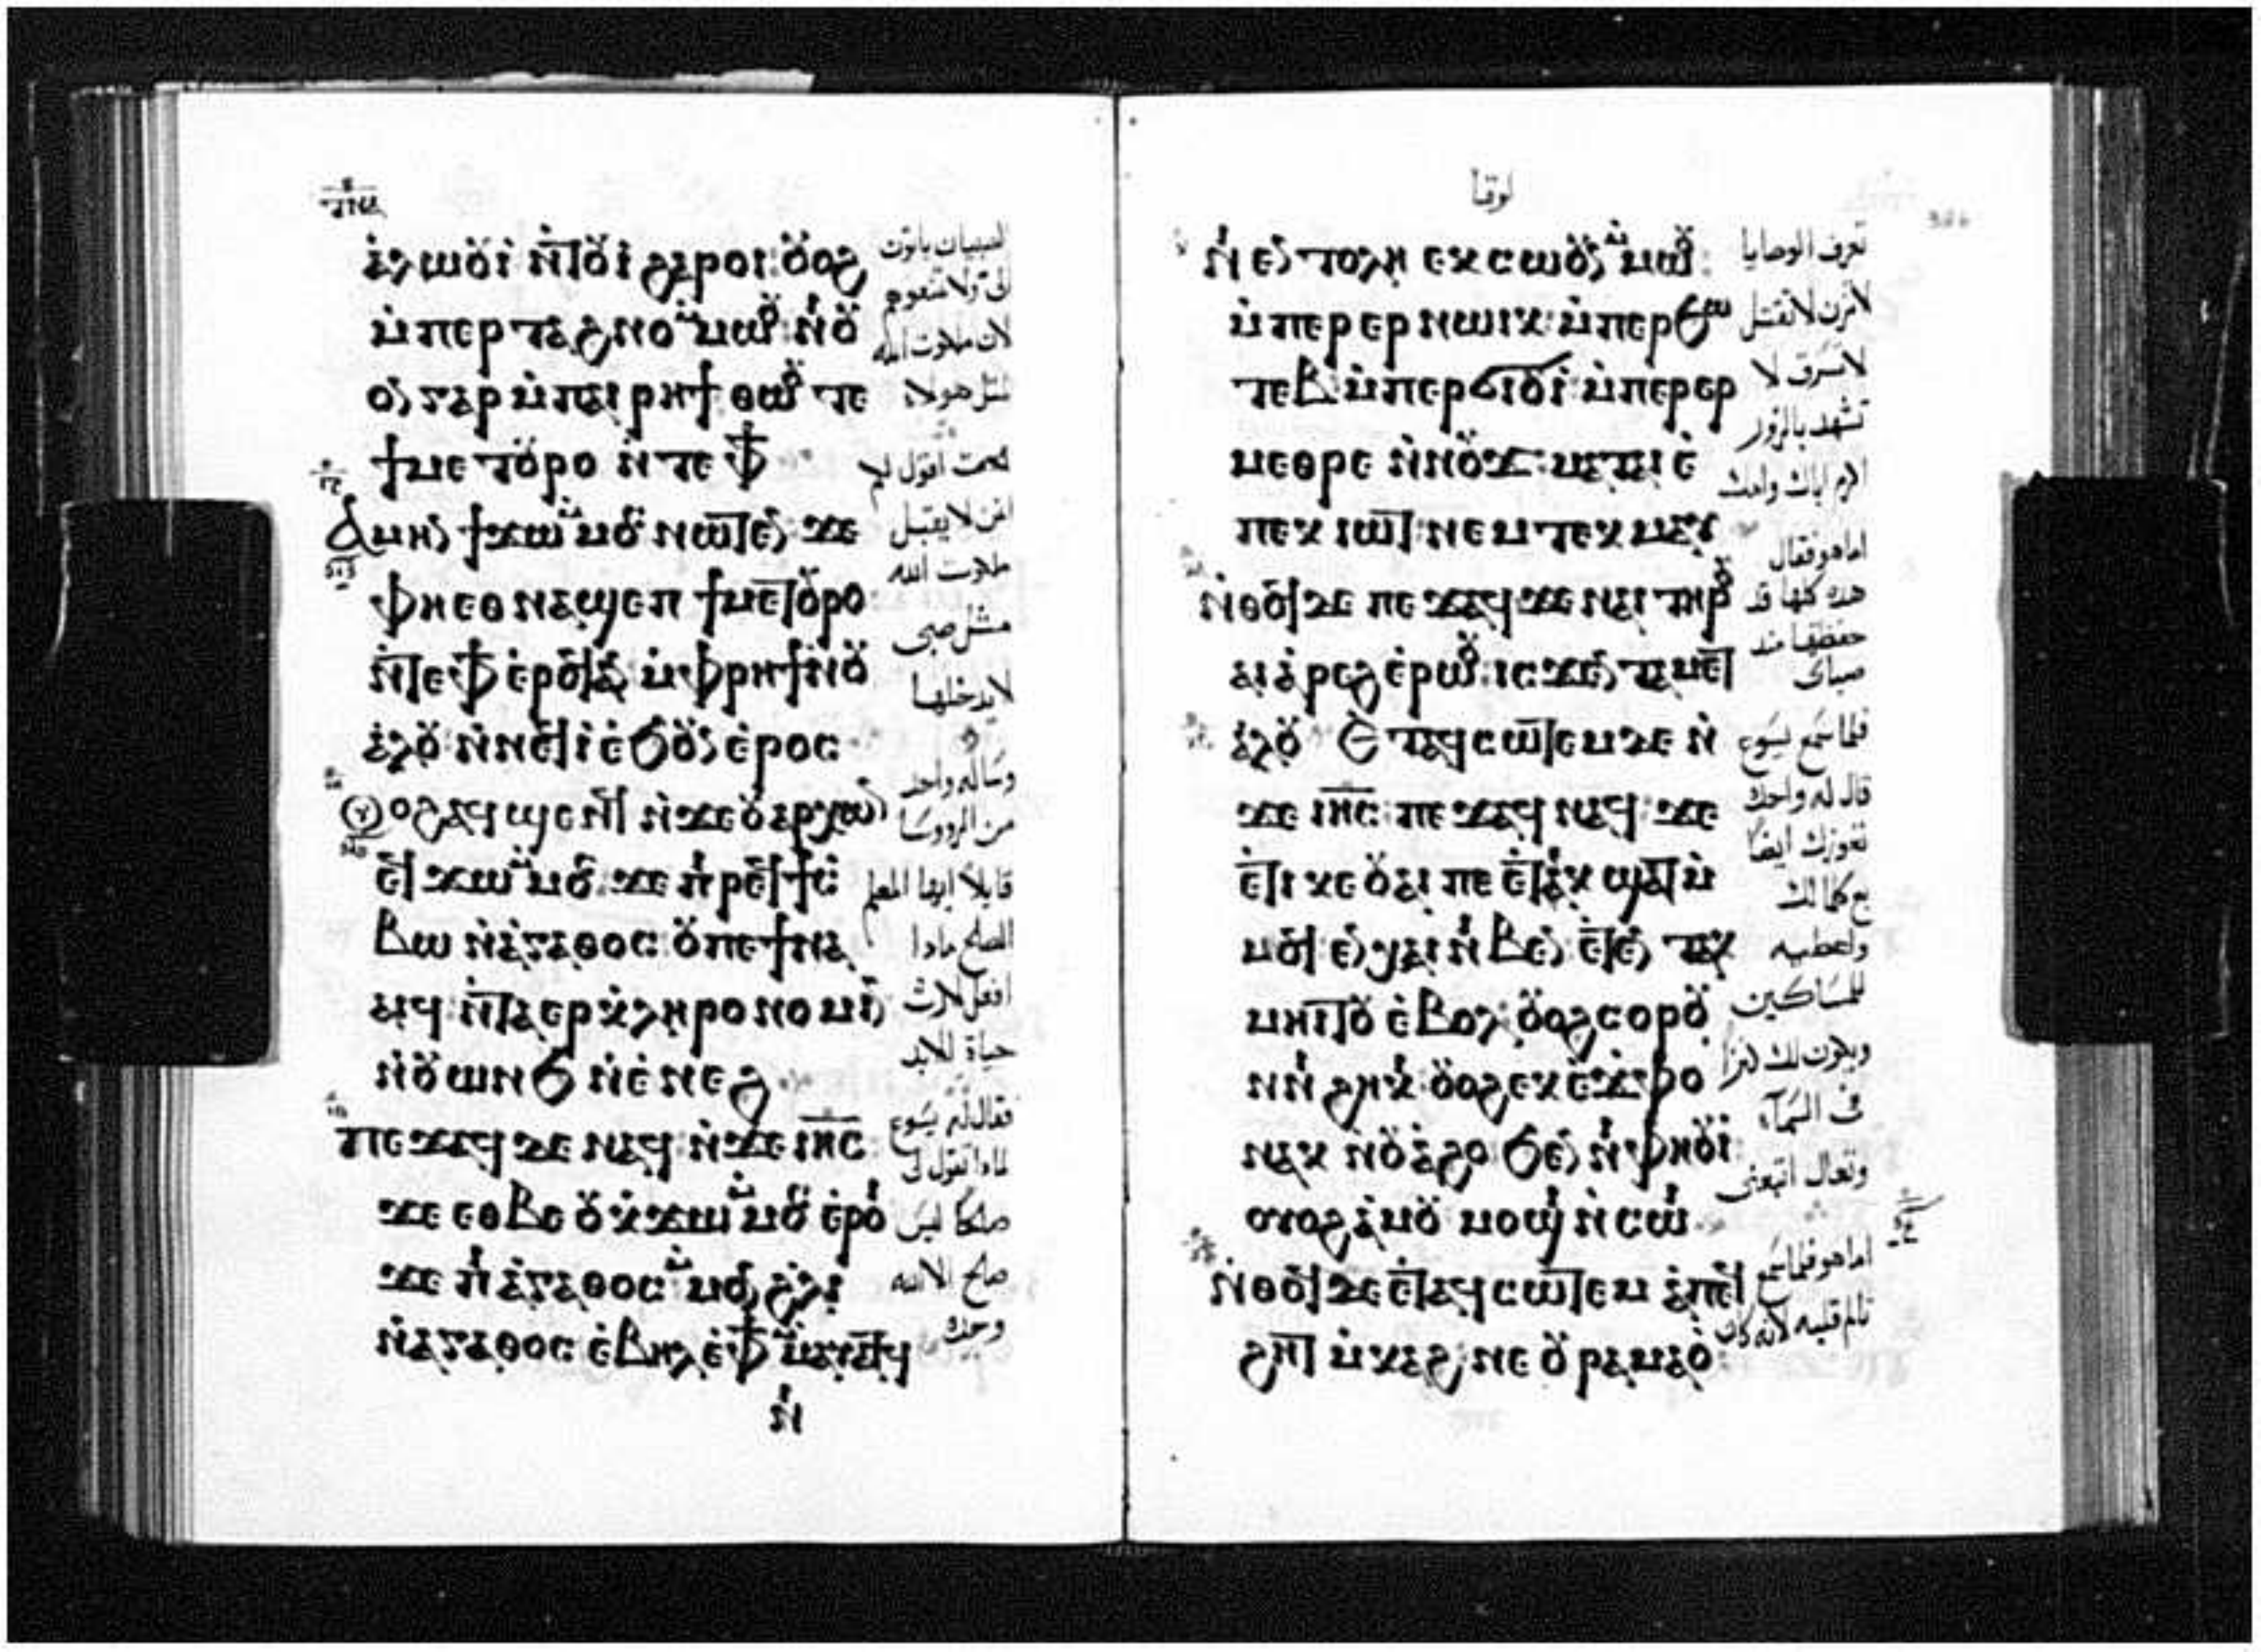 ⲁ̀ⲗⲱⲟⲩⲓ̀ ⲛ̀ⲧⲟⲩⲓ̀ ϩⲁⲣⲟⲓ: ⲟⲩⲟϩ
ⲙ̀ⲡⲉⲣⲧⲁϩⲛⲟ ⲙ̀ⲙⲱⲟⲩ: ⲛⲟⲩ
ⲟⲩⲛ ⲅⲁⲣ ⲙ̀ⲡⲁⲓⲣⲏϯ ⲑⲱⲟⲩ ⲧⲉ
ϯⲙⲉⲧⲟⲩⲣⲟ ⲛ̀ⲧⲉ ⲫϯ
ⲁⲙⲏⲛ ϯϫⲱ ⲙ̀ⲙⲟⲥ ⲛⲱⲧⲉⲛ: ϫⲉ
ⲫⲏⲉⲑⲛⲁϣⲉⲡ ϯⲙⲉⲧⲟⲩⲣⲟ
ⲛ̀ⲧⲉⲫϯ ⲉ̀ⲣⲟϥ ⲁⲛ ⲙ̀ⲫⲣⲏϯ ⲛ̀ⲟⲩ
ⲁ̀ⲗⲟⲩ ⲛ̀ⲛⲉϥⲓ̀ ⲉ̀ϧⲟⲩⲛ ⲉ̀ⲣⲟⲥ
ⲟⲩⲟϩ ⲁϥϣⲉⲛϥ ⲛ̀ϫⲉ ⲟⲩⲁⲣⲭⲱⲛ
ⲉϥϫⲱ ⲙ̀ⲙⲟⲥ: ϫⲉ ⲡⲓⲣⲉϥϯⲥ̀
ⲃⲱ ⲛ̀ⲁ̀ⲅⲁⲑⲟⲥ: ⲟⲩ ⲡⲉϯⲛⲁ
ⲁⲓϥ ⲛ̀ⲧⲁⲉⲣⲕ̀ⲗⲏⲣⲟⲛⲟⲙⲓⲛ
ⲛ̀ⲟⲩⲱⲛϧ ⲛ̀ⲉ̀ⲛⲉϩ
ⲡⲉϫⲁϥ ⲇⲉ ⲛⲁϥ: ⲛ̀ϫⲉ ⲓⲏⲥ:
ϫⲉ ⲉⲑⲃⲉ ⲟⲩ ⲕ̀ϫⲱ ⲙ̀ⲙⲟⲥ ⲉ̀ⲣⲟⲓ
ϫⲉ ⲡⲓⲁ̀ⲅⲁⲑⲟⲥ: ⲙ̀ⲙⲟⲛ ϩ̀ⲗⲓ
ⲛ̀ⲁ̀ⲅⲁⲑⲟⲥ ⲉ̀ⲃⲏⲗ ⲉ̀ⲫϯ ⲙ̀ⲙⲁⲩⲁⲧϥ
ⲛⲓ
لان ملكوت الله
مثل هولا
الحق اقول لكم
لمن لا يقبل
ملكوت الله
مثل صبى
لا يدخلها
وساله واحد
من الرووسا
قايلا ايها المعلم
الصالح ماذا
افعل لارث
حياة الابد
فقال له يسوع
لماذا تقول لى
صالحا ليس
صالح الا الله
وحده
لوقا
ⲛⲓⲉⲛⲧⲟⲗⲏ ⲕⲥⲱⲟⲩⲛ ⲙ̀ⲙⲱⲟⲩ:
ⲙ̀ⲡⲉⲣⲉⲣⲛⲱⲓⲕ: ⲙ̀ⲡⲉⲣϧⲱ
ⲧⲉⲃ ⲙ̀ⲡⲉⲣϭⲓⲟⲩⲓ̀: ⲙ̀ⲡⲉⲣⲉⲣ
ⲙⲉⲑⲣⲉ ⲛ̀ⲛⲟⲩϫ: ⲙⲁⲧⲁⲓⲉ̀
ⲡⲉⲕⲓⲱⲧ: ⲛⲉⲙ ⲧⲉⲕⲙⲁⲩ
ⲛ̀ⲑⲟϥ ⲇⲉ ⲡⲉϫⲁϥ ϫⲉ ⲛⲁⲓ ⲧⲏⲣⲟⲩ
ⲁⲓⲁ̀ⲣⲉϩ ⲉ̀ⲣⲱⲟⲩ: ⲓⲥϫⲉⲛ ⲧⲁⲙⲉⲧ
ⲁ̀ⲗⲟⲩ ⲉ̀ⲧⲁϥⲥⲱⲧⲉⲙ ⲇⲉ ⲛ̀
ϫⲉ ⲓⲏⲥ: ⲡⲉϫⲁϥ ⲛⲁϥ: ϫⲉ
ⲉ̀ⲧⲓ ⲕⲉ ⲟⲩⲁⲓ ⲡⲉⲧⲉⲕ ϣⲁⲧ ⲙ̀
ⲙⲟϥ ⲉⲛⲭⲁⲓ ⲛⲓⲃⲉⲛ ⲉ̀ⲧⲉⲛⲧⲁⲕ
ⲙⲏⲓⲧⲟⲩ ⲉ̀ⲃⲟⲗ: ⲟⲩⲟϩ ⲥⲟⲣⲟⲩ
ⲛⲛⲓϩⲏⲕⲓ: ⲟⲩⲟϩ ⲉⲕⲉ̀ϫⲫⲟ
ⲛⲁⲕ ⲛ̀ⲟⲩⲁ̀ϩⲟ ϧⲉⲛ ⲛⲓⲫⲏⲟⲩⲓ̀:
ⲟⲩⲟϩ ⲁ̀ⲙⲟⲩ ⲙⲟϣⲓ ⲛ̀ⲥⲱⲓ
ⲛ̀ⲑⲟϥ ⲇⲉ ⲉ̀ⲧⲁϥⲥⲱⲧⲉⲙ ⲁ̀ⲡⲉϥ
ϩⲏⲧ ⲙ̀ⲕⲁϩ: ⲛⲉ ⲟⲩⲣⲁⲙⲁⲟ̀
تعرف الوصايا
لا تزن لا تقتل
لا تسرق لا
تشهد بالزور
اكرم اباك وامك
اما هو فقال
هذه كلها قد
حفظتها منذ
صباى
فلما سمع يسوع
قال له واحدة
تعوزك ايضا
بع كلما لك
واعطيه
للمساكين
ويكون لك كنزا
فى السماء
وتعال اتبعنى
اما هو فلما سمع
تالم قلبه لانه كان